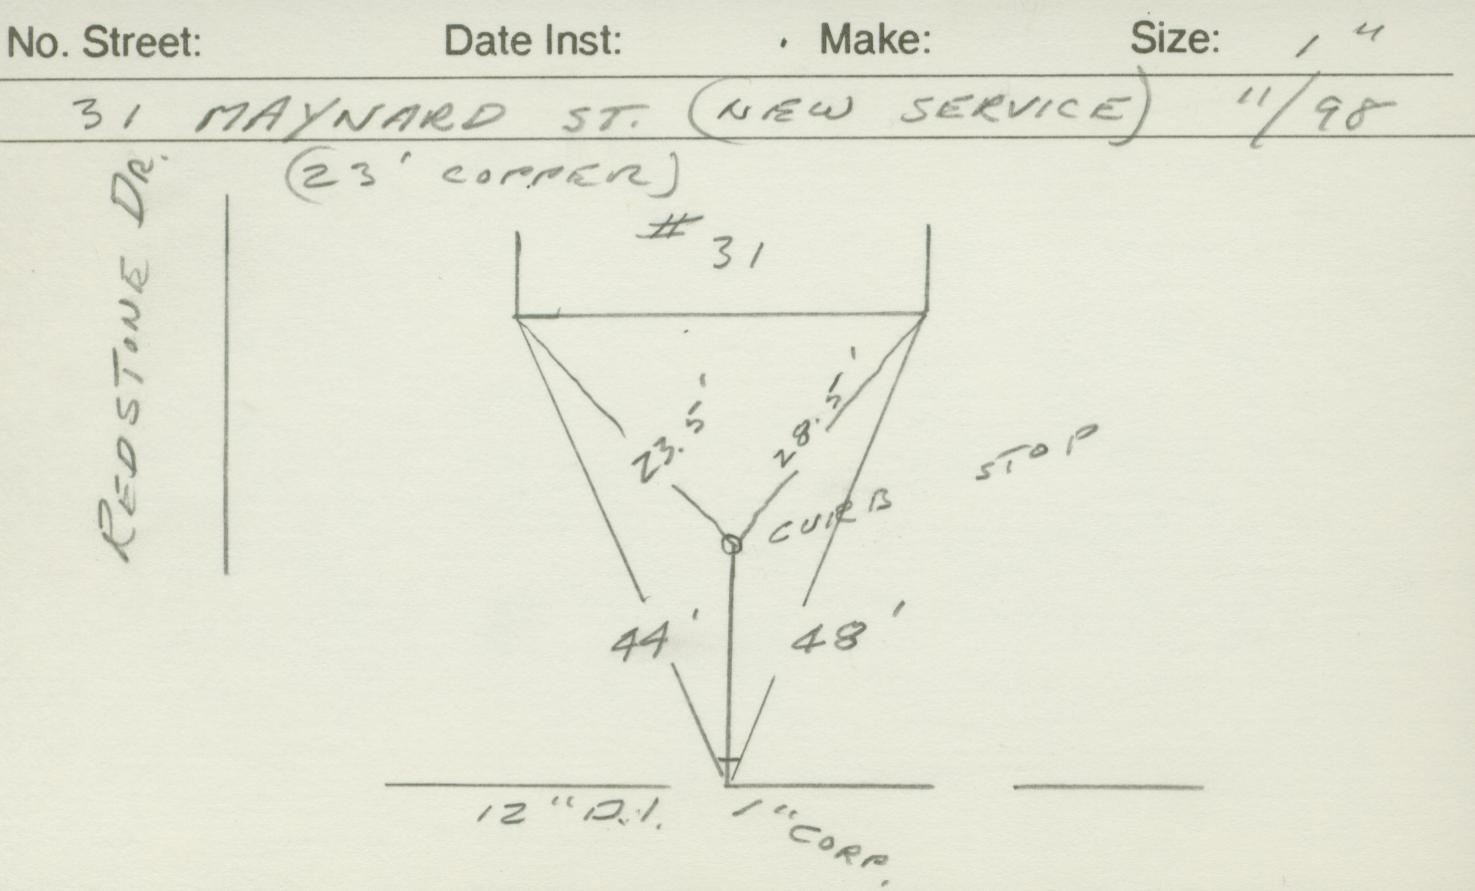 No. Street: Date Inst: Make: Size: 1"
31 MAYNARD ST. (NEW SERVICE) 11/98
(23' COPPER)
REDSTONE DR.
# 31
23.5' 28.5'
CURB STOP
44' 48'
12" D.I. 1" CORP.